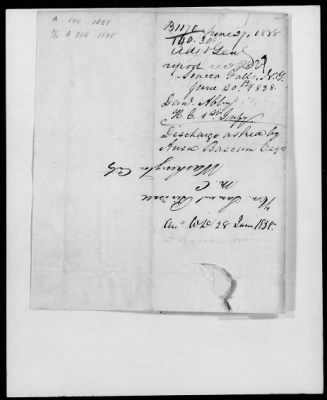 A 140 1838
A 208 1838
B 117 June 27, 1838
140.30
Adjt Genl
report
Seneca Falls, N.Y.
June 20th 1838.
Danl. Abby
H. C. 1st Infy
Discharge asked by
Ansa Bascum Esqr
Washington City
M. C
Hon. Samuel
Ansd 28 June 1838.